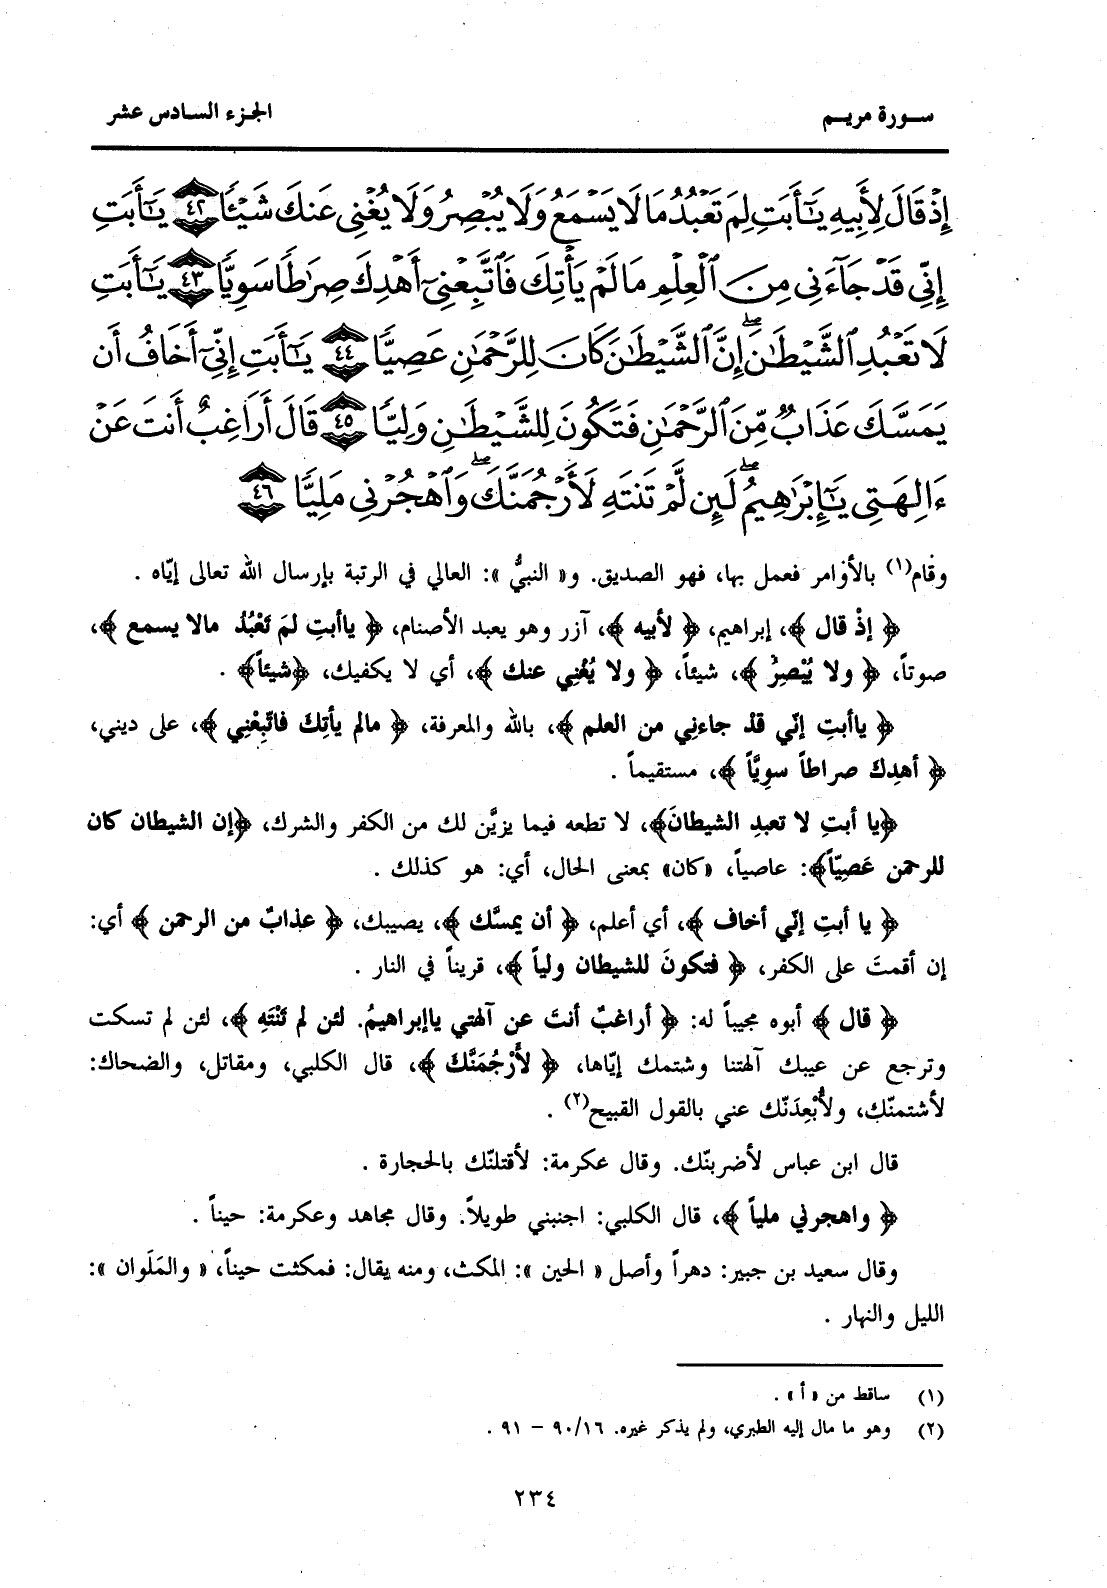 سورة مريم
الجزء السادس عشر
إِذْ قَالَ لِأَبِيهِ يَٰٓأَبَتِ لِمَ تَعْبُدُ مَا لَا يَسْمَعُ وَلَا يُبْصِرُ وَلَا يُغْنِى عَنكَ شَيْـًٔا ٤٢ يَٰٓأَبَتِ
إِنِّى قَدْ جَآءَنِى مِنَ ٱلْعِلْمِ مَا لَمْ يَأْتِكَ فَٱتَّبِعْنِىٓ أَهْدِكَ صِرَٰطًا سَوِيًّا ٤٣ يَٰٓأَبَتِ
لَا تَعْبُدِ ٱلشَّيْطَٰنَ ۖ إِنَّ ٱلشَّيْطَٰنَ كَانَ لِلرَّحْمَٰنِ عَصِيًّا ٤٤ يَٰٓأَبَتِ إِنِّىٓ أَخَافُ أَن
يَمَسَّكَ عَذَابٌ مِّنَ ٱلرَّحْمَٰنِ فَتَكُونَ لِلشَّيْطَٰنِ وَلِيًّا ٤٥ قَالَ أَرَاغِبٌ أَنتَ عَنْ
ءَالِهَتِى يَٰٓإِبْرَٰهِيمُ ۖ لَئِن لَّمْ تَنتَهِ لَأَرْجُمَنَّكَ ۖ وَٱهْجُرْنِى مَلِيًّا ٤٦
وقام(١) بالأوامر فعمل بها، فهو الصديق. و« النبيُّ »: العالي في الرتبة بإرسال الله تعالى إيّاه .
﴿ إذْ قال ﴾، إبراهيم، ﴿ لأبيه ﴾، آزر وهو يعبد الأصنام، ﴿ ياأبتِ لمَ تَعْبُدُ مالا يسمع ﴾،
صوتاً، ﴿ ولا يُبْصِرُ ﴾، شيئاً، ﴿ ولا يُغْنِي عنك ﴾، أي لا يكفيك، ﴿شيئاً﴾ .
﴿ ياأبتِ إنّي قدْ جاءنِي من العلم ﴾، بالله والمعرفة، ﴿ مالم يأتِكَ فاتّبِعْنِي ﴾، على ديني،
﴿ أهدِكَ صراطاً سوِيَّاً ﴾، مستقيماً .
﴿يا أبتِ لا تعبدِ الشيطانَ﴾، لا تطعه فيما يزيَّن لك من الكفر والشرك، ﴿إن الشيطان كان
للرحمن عَصِيّاً﴾: عاصياً، «كان» بمعنى الحال، أي: هو كذلك .
﴿ يا أبتِ إنّي أخاف ﴾، أي أعلم، ﴿ أن يمسَّك ﴾، يصيبك، ﴿ عذابٌ من الرحمن ﴾ أي:
إن أقمتَ على الكفر، ﴿ فتكونَ للشيطان ولياً ﴾، قريناً في النار .
﴿ قال ﴾ أبوه مجيباً له: ﴿ أراغبٌ أنتَ عن آلهتي ياإبراهيمُ. لئن لم تَنْتَهِ ﴾، لئن لم تسكت
وترجع عن عيبك آلهتنا وشتمك إيّاها، ﴿ لأَرْجُمَنَّكَ ﴾، قال الكلبي، ومقاتل، والضحاك:
لأشتمنّك، ولأُبْعِدَنّك عني بالقول القبيح(٢) .
قال ابن عباس لأضربنّك. وقال عكرمة: لأقتلنّك بالحجارة .
﴿ واهجرني ملياً ﴾، قال الكلبي: اجنبني طويلاً. وقال مجاهد وعكرمة: حيناً .
وقال سعيد بن جبير: دهراً وأصل « الحين »: المكث، ومنه يقال: فمكثت حيناً، « والمَلَوان »:
الليل والنهار .
(١) ساقط من « أ » .
(٢) وهو ما مال إليه الطبري، ولم يذكر غيره. ٩٠/١٦ – ٩١ .
٢٣٤